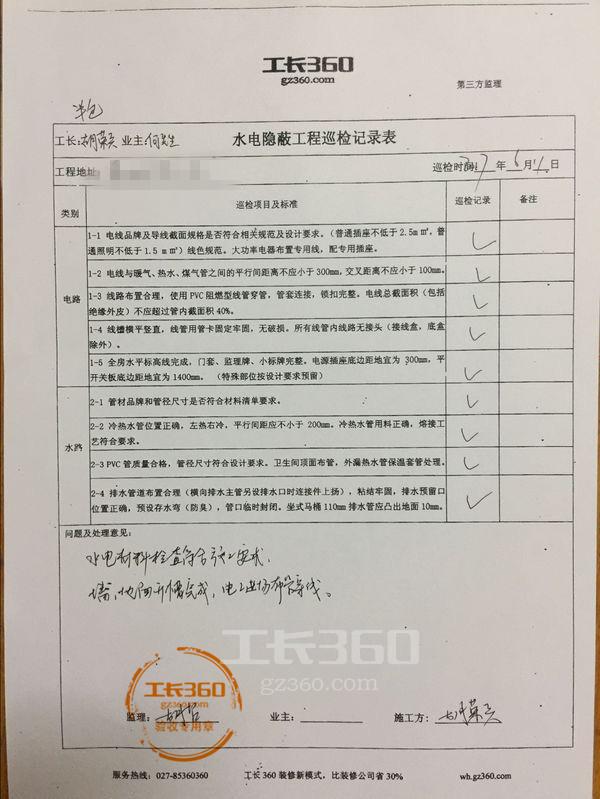 工长360
gz360.com
第三方监理
半包
工长: 业主:何先生 水电隐蔽工程巡检记录表
工程地址 巡检时间: 2017 年 6 月 日
类别 巡检项目及标准 巡检记录 备注
电路
1-1 电线品牌及导线截面规格是否符合相关规范及设计要求。(普通插座不低于 2.5m㎡,普
通照明不低于 1.5 m㎡)线色规范。大功率电器布置专用线,配专用插座。
1-2 电线与暖气、热水、煤气管之间的平行间距离不应小于300mm,交叉距离不应小于 100mm。
1-3 线路布置合理,使用 PVC 阻燃型线管穿管,管套连接,锁扣完整。电线总截面积(包括
绝缘外皮)不应超过管内截面积 40%。
1-4 线槽横平竖直,线管用管卡固定牢固,无破损。所有线管内线路无接头(接线盒,底盒
除外)。
1-5 全房水平标高线完成,门套、监理牌、小标牌完整。电源插座底边距地宜为 300mm,平
开关板底边距地宜为 1400mm。 (特殊部位按设计要求预留)
水路
2-1 管材品牌和管径尺寸是否符合材料清单要求。
2-2 冷热水管位置正确,左热右冷,平行间距应不小于 200mm。冷热水管用料正确,熔接工
艺符合要求。
2-3 PVC 管质量合格,管径尺寸符合设计要求。卫生间顶面布管,外漏热水管保温套管处理。
2-4 排水管道布置合理(横向排水主管另设排水口时连接件上扬),粘结牢固,排水预留口
位置正确,预设存水弯(防臭),管口临时封闭。坐式马桶 110mm 排水管应凸出地面 10mm。
问题及处理意见:
水电材料检查符合施工要求,
墙、地面开槽完成,电工进场布管穿线。
工长360
gz360.com
工长360
验收专用章
监理: 业主: 施工方:
服务热线:027-85360360 工长 360 装修新模式,比装修公司省 30% wh.gz360.com